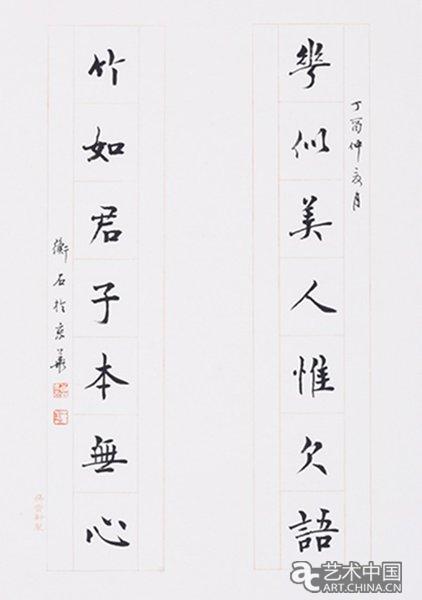 丁酉仲夏月
華似美人惟欠語
竹如君子本無心
石於京華
ac 艺术中国
ART.CHINA.CN